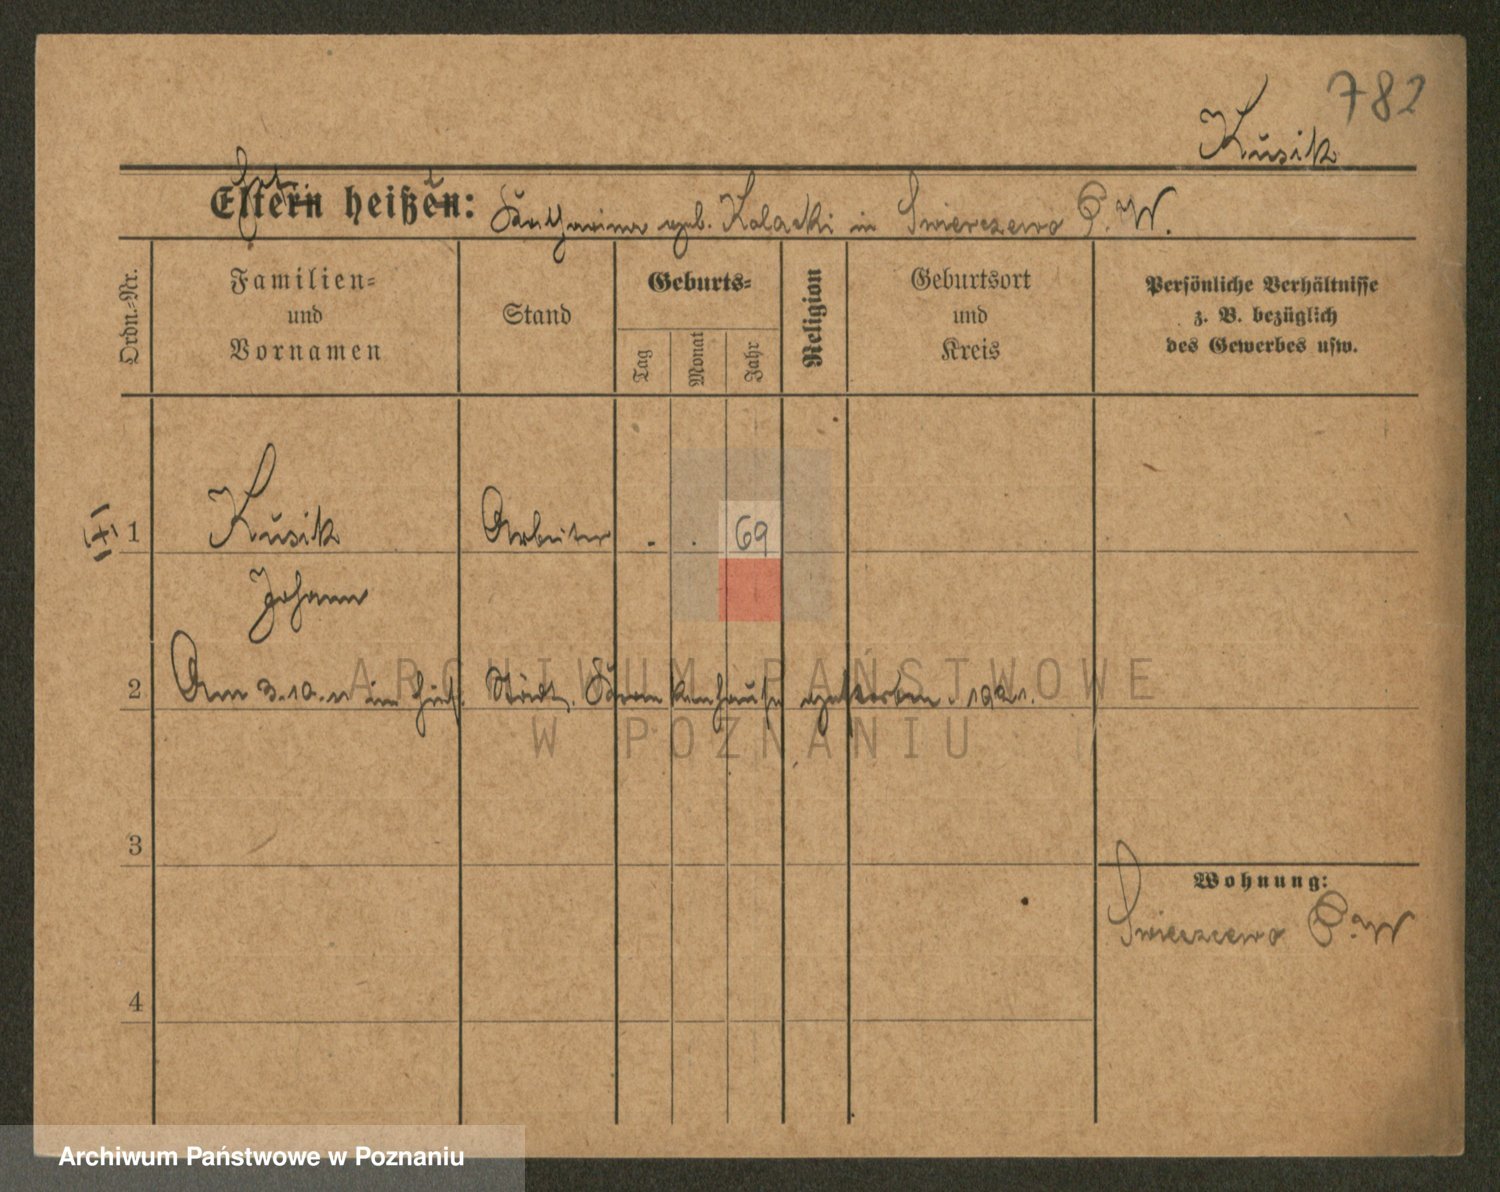 782
Kusik
Eltern heißen: Katharina geb. Kolacki in Swierczewo P. W.
Ordn.-Nr.
Familien- und Vornamen
Stand
Geburts-
Tag
Monat
Jahr
Religion
Geburtsort und Kreis
Persönliche Verhältnisse z. B. bezüglich des Gewerbes usw.
1 Kusik Arbeiter - . 69
Johann
2 Am 3.10.11 im hies. Städt. Krankenhause gestorben. 1921.
3
Wohnung:
Swierczewo P. W
4
ARCHIWUM PAŃSTWOWE
W POZNANIU
Archiwum Państwowe w Poznaniu